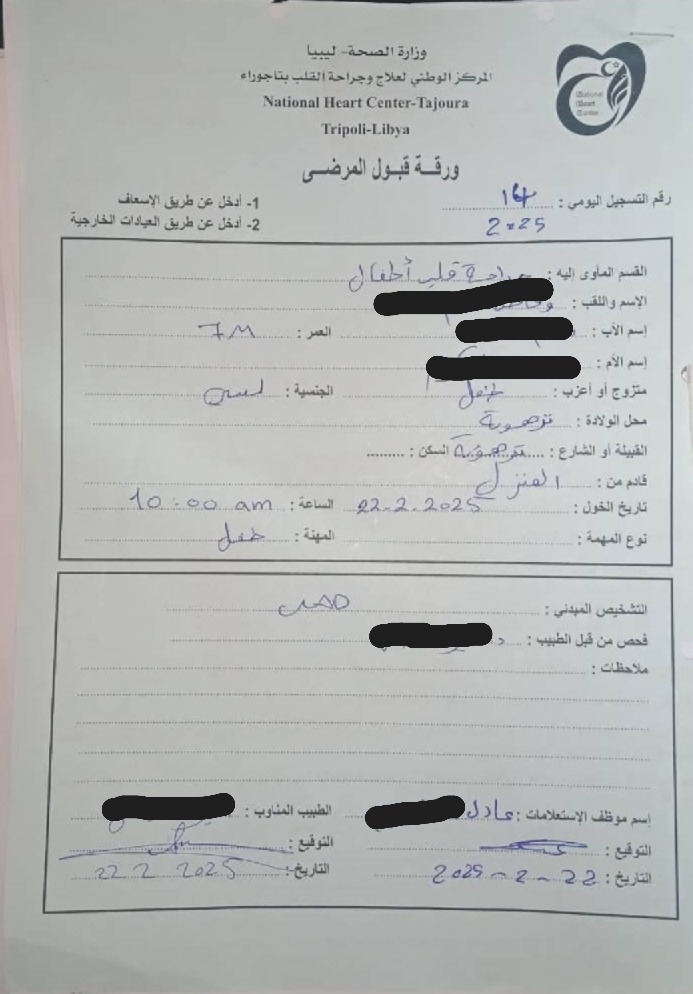 وزارة الصحة - ليبيا
المركز الوطني لعلاج وجراحة القلب بتاجوراء
National Heart Center-Tajoura
Tripoli-Libya
National
Heart
Center
ورقة قبول المرضى
رقم التسجيل اليومي : 14
2025
1- أدخل عن طريق الإسعاف
2- أدخل عن طريق العيادات الخارجية
القسم المأوى اليه : جراحة قلب أطفال
الإسم واللقب :
إسم الأب : العمر : 7M
إسم الأم :
متزوج أو أعزب : طفل الجنسية : ليبي
محل الولادة : ترهونة
القبيلة أو الشارع : ترهونة السكن :
قادم من : المنزل
تاريخ الخول : 22.2.2025 الساعة : 10:00 am
نوع المهمة : المهنة : طفل
التشخيص المبدئي :
فحص من قبل الطبيب : د
ملاحظات :
إسم موظف الإستعلامات : عادل الطبيب المناوب :
التوقيع : التوقيع :
التاريخ : 22-2-2025 التاريخ : 22 2 2025